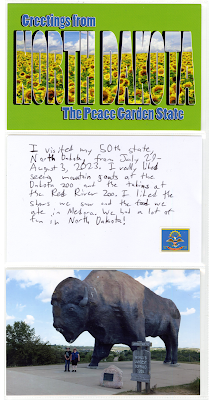 Greetings from
NORTH DAKOTA
The Peace Garden State
I visited my 50th state,
North Dakota, from July 29-
August 3, 2023. I really liked
seeing mountain goats at the
Dakota zoo and the takins at
the Red River Zoo. I liked the
shows we saw and the food we
ate in Medora. We had a lot of
fun in North Dakota!